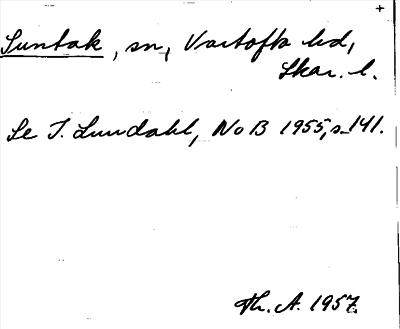 +
Suntak, sn, Vartofta hd,
Skar. l.
Se I. Lundahl, NoB 1955, s. 141.
Th. A. 1957.